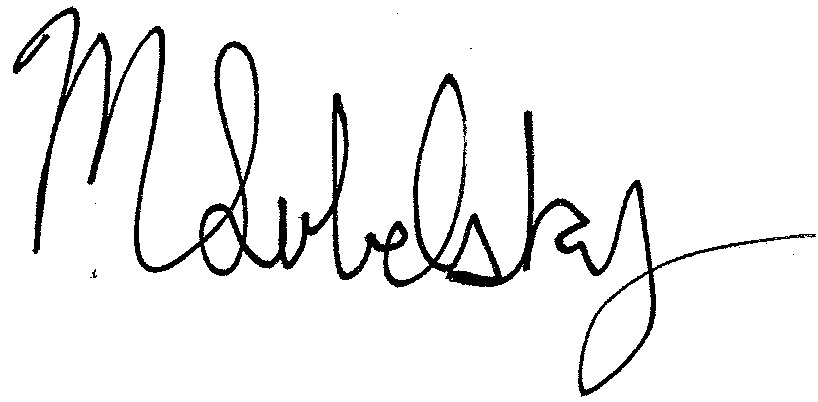 M Lubelsky